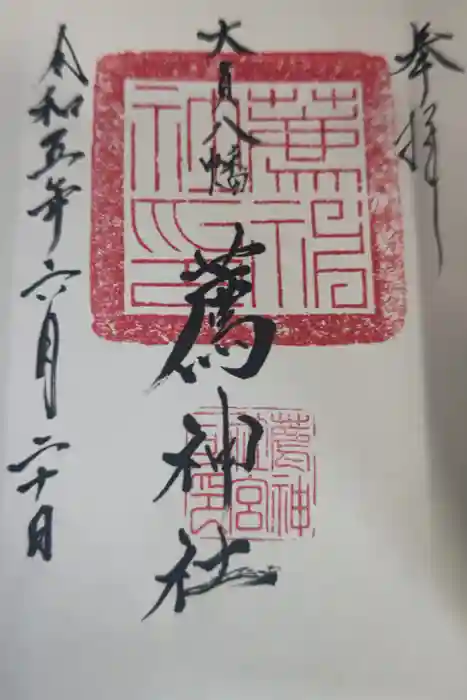 奉拝
大貞八幡
薦神社
令和五年六月二十日
薦神社印
薦神社宮司印